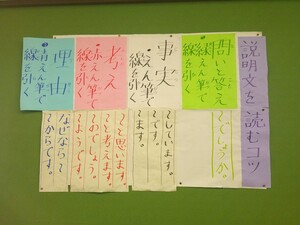 説明文を読むコツ
問いと答え
緑えん筆で
線を引く
でしょうか。
事実
えん筆で
線を引く
しています。
です。
ます。
考え
赤えん筆で
線を引く
と思います。
と考えます。
のでしょう。
ようです。
理由
青えん筆で
線を引く
なぜなら
てからです。